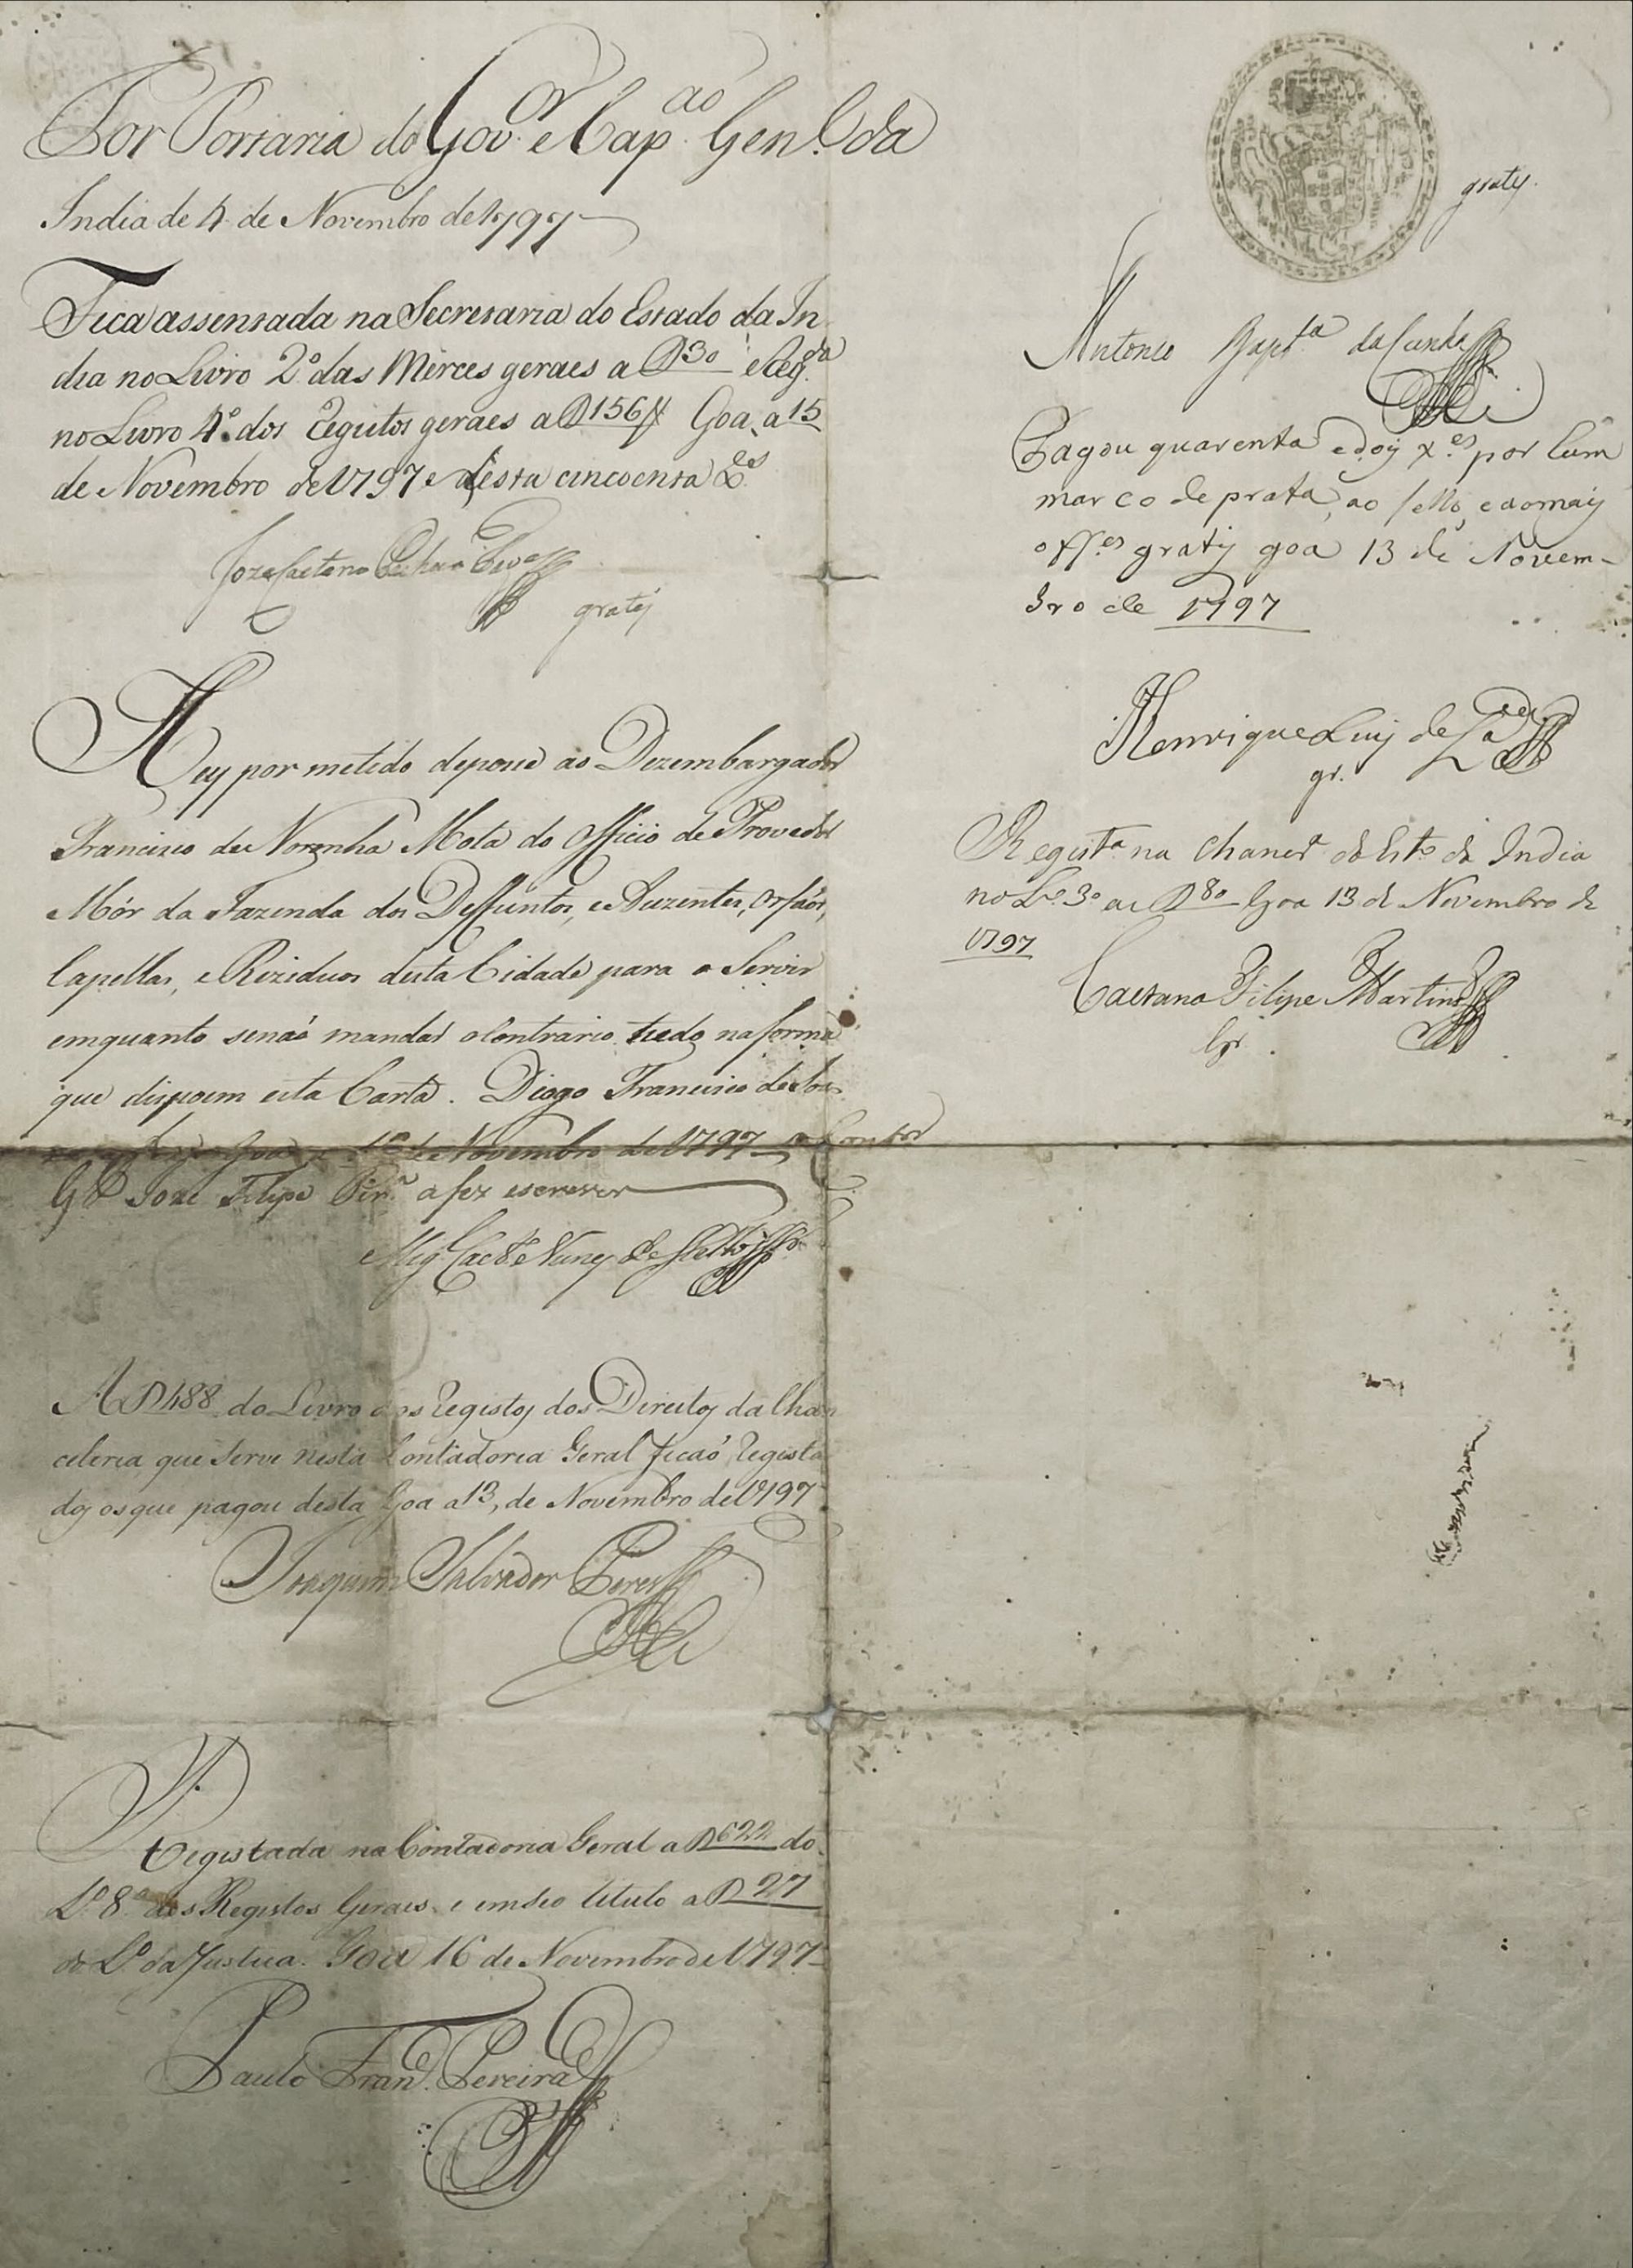 Por Portaria do Gov.or e Cap.ao Gen.l da
India de 4 de Novembro de 1797
Fica assentada na Secretaria do Estado da In
dia no Livro 2º das Merces geraes a 30 e Reg.da
no Livro 4º dos Registos geraes a 156 Goa, a 15
de Novembro de 1797 e desta cincoenta
Joze Caetano
gratis
Hey por metido de posse ao Dezembargador
Francisco de Noronha Mota do Officio de Provedor
Mór da Fazenda dos Deffuntos, e Auzentes, Orfáos,
Capellas, e Reziduos desta Cidade para o Servir
emquanto senaó mandar o Contrario, tudo na forma
que dispoem esta Carta. Diogo Francisco de Sou
Goa de Novembro de 1797 o Contor
G.al Joze Filipe Pir.a a fez escrever
Mig.l Caet.e Nunes de
A 488 do Livro dos Registos dos Direitos da Chan
celeria que Serve nesta Contadoria Geral ficaó Regista
dos os que pagou desta Goa a 13, de Novembro de 1797
Joaquim Salvador Peres
Registada na Contadoria Geral a 622 do
L.º 8.º dos Registos Geraes e em seo titulo a 27
do L.º da Justiça. Goa 16 de Novembro de 1797
Paulo Fran.co Pereira
gratis.
Antonio Bapt.ta da Cunha
Pagou quarenta e dois x.es por hum
marco de prata, ao sello, e aomais
off.es gratis goa 13 de Novem-
bro de 1797
Henrique Luis de
gr.
Regist.a na Chanc.r do Est.o da India
no L.º 3º a 80 Goa 13 de Novembro de
1797
Caetano Filipe Martins
Gr.